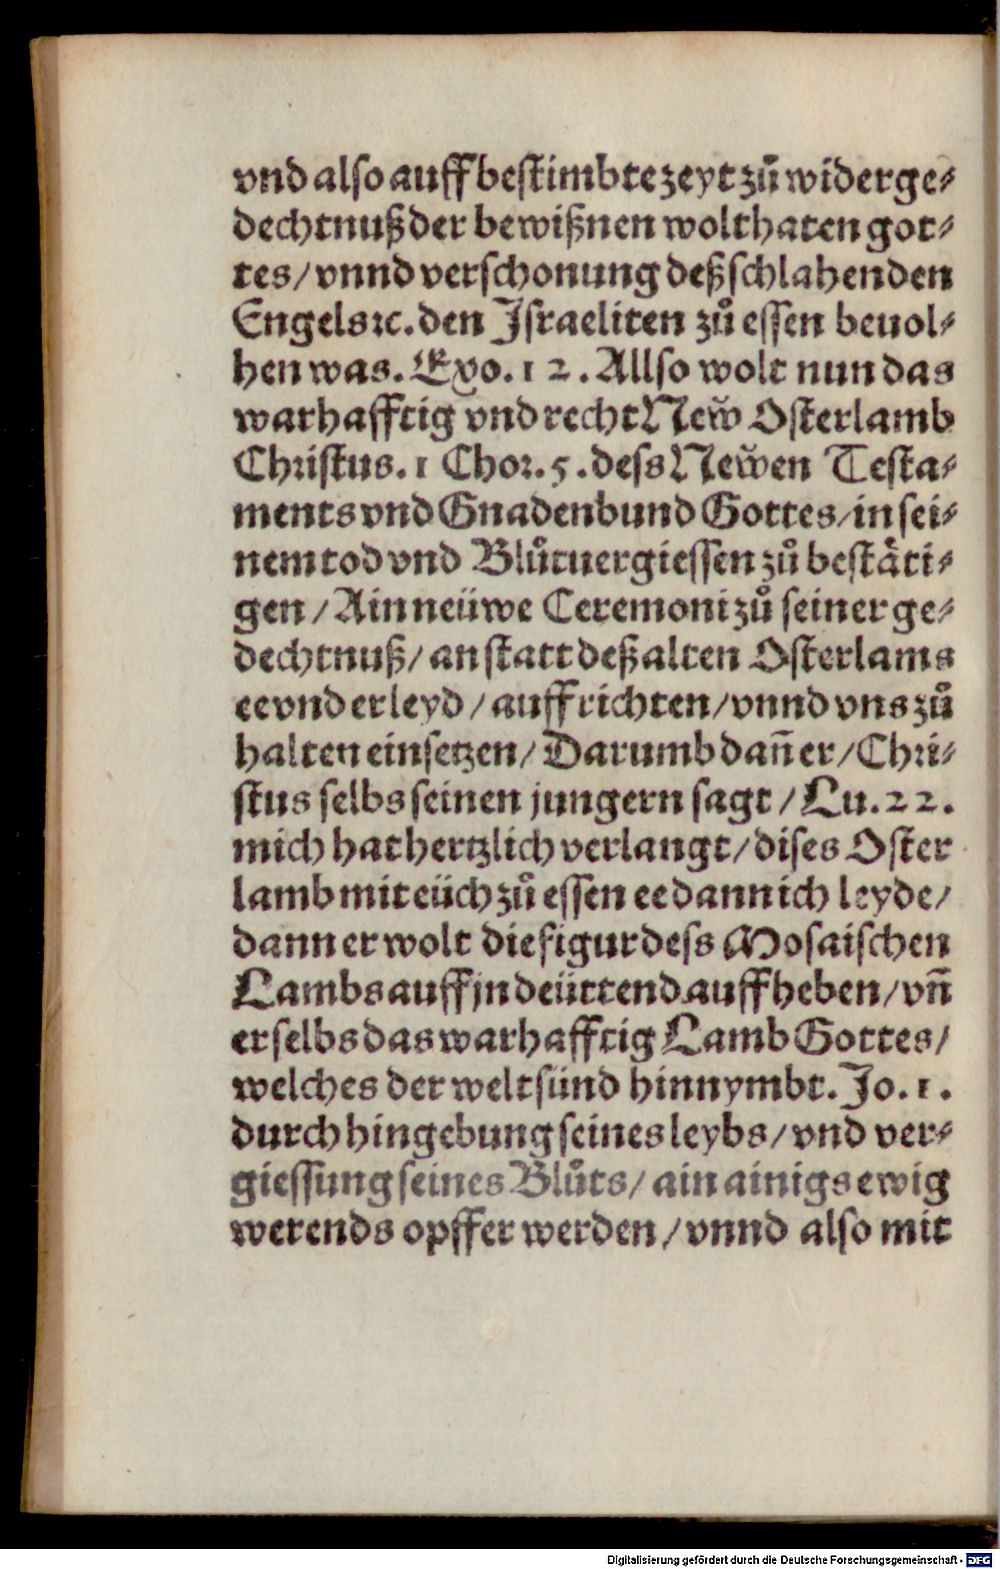 vnd also auff bestimbte zeyt zů widerge⸗
dechtnuß der bewißnen wolthaten got⸗
tes/ vnnd verschonung deß schlahenden
Engels ꝛc. den Israeliten zů essen beuol⸗
hen was. Exo. 12. Allso wolt nun das
warhafftig vnd recht New̌ Osterlamb
Christus. 1 Chor. 5. dess New̌en Testa⸗
ments vnd Gnadenbund Gottes/ in sei⸗
nem tod vnd Blůtuergiessen zů bestäti⸗
gen / Ain neüwe Ceremoni zů seiner ge⸗
dechtnuß/ an statt deß alten Osterlams
ee vnd er leyd / auffrichten/ vnnd vns zů
halten einsetzen/ Darumb dañ er/ Chri⸗
stus selbs seinen jungern sagt / Lu. 22.
mich hat hertzlich verlangt/ dises Oster
lamb mit eüch zů essen ee dann ich leyde/
dann er wolt die figur dess Mosaischen
Lambs auff jn deüttend auffheben/ vñ
er selbs das warhafftig Lamb Gottes/
welches der welt sünd hinnymbt. Jo. 1.
durch hingebung seines leybs/ vnd ver⸗
giessung seines Blůts/ ain ainigs ewig
werends opffer werden / vnnd also mit
Digitalisierung gefördert durch die Deutsche Forschungsgemeinschaft - DFG